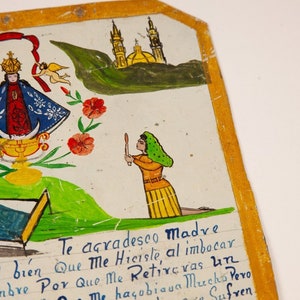 Te agradesco Madre
bien Que Me Hiciste, al imbocar
mbre Por Que Me Retiraras Un
Que Me hagobiaua Mucho Pero
Sufren